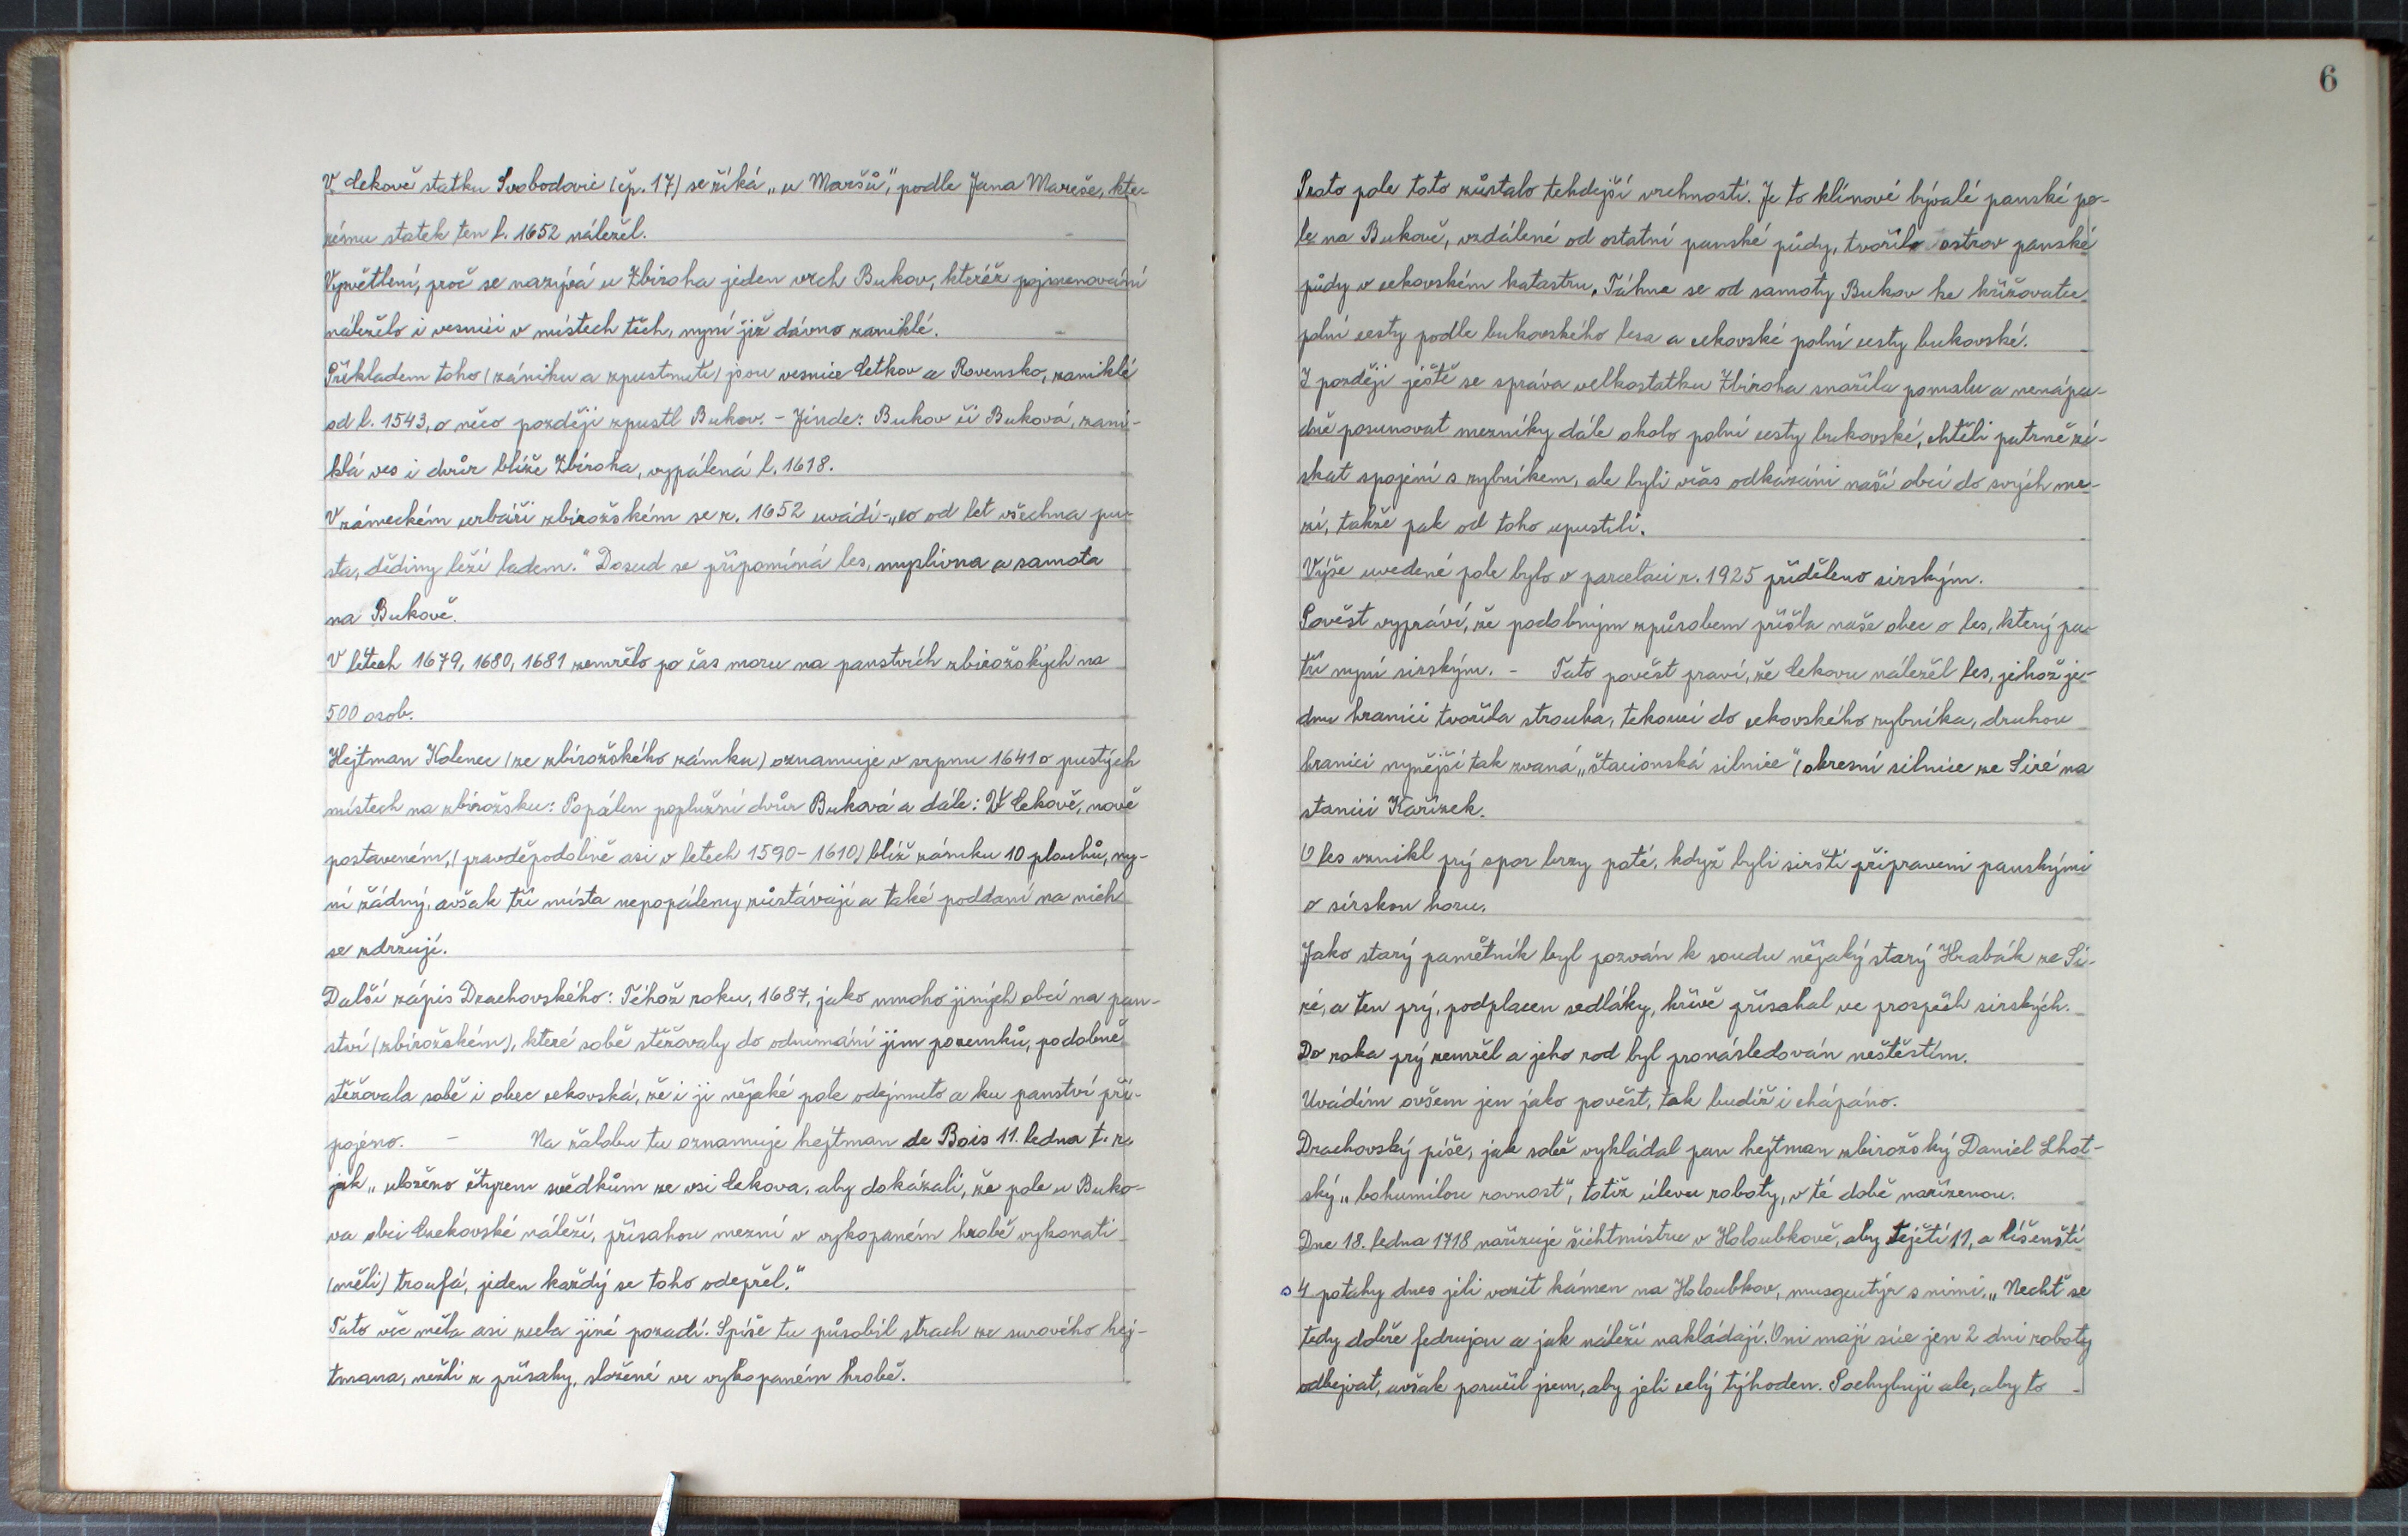 V Cekově statku Svobodovic (čp. 17) se říká „u Maršů“, podle Jana Mareše, kte-
rému statek ten l. 1652 náležel.
Vysvětlení, proč se nazývá u Zbiroha jeden vrch Bukov, kteréž pojmenování
náleželo i vesnici v místech těch, nyní již dávno zaniklé.
Příkladem toho (zániku a zpustnutí) jsou vesnice Cetkov a Rovensko, zaniklé
od l. 1543, o něco později zpustl Bukov. - Jinde: Bukov či Buková, zani-
klá ves i dvůr blíže Zbiroha, vypálená l. 1618.
V zámeckém urbáři zbirožském se r. 1652 uvádí - „co od let všechna pu-
sta, dědiny leží ladem.“ Dosud se připomíná les, myslivna a samota
na Bukově.
V letech 1679, 1680, 1681 zemřelo po čas moru na panstvích zbirožských na
500 osob.
Hejtman Kolenec (ze zbirožského zámku) oznamuje v srpnu 1641 o pustých
místech na zbirožsku: Popálen poplužní dvůr Buková a dále: V Cekově, nově
postaveném, (pravděpodobně asi v letech 1590-1610) blíž zámku 10 plouhů, ny-
ní žádný, avšak tři místa nepopáleny zůstávají a také poddaní na nich
se zdržují.
Další zápis Drachovského: Téhož roku, 1687, jako mnoho jiných obcí na pan-
ství (zbirožském), které sobě stěžovaly do odnímání jim pozemků, podobně
stěžovala sobě i obec cekovská, že i jí nějaké pole odejmuto a ku panství při-
pojeno. - Na žalobu tu oznamuje hejtman de Bois 11. ledna t. r.
jak „uloženo čtyrem svědkům ze vsi Cekova, aby dokázali, že pole u Buko-
va obci Czekovské náleží, přísahou mezní v vykopaném hrobě vykonati
(měli) troufá, jeden každý se toho odepřel.“
Tato věc měla asi zcela jiné pozadí. Spíše tu působil strach ze surového hej-
tmana, nežli z přísahy, složené ve vykopaném hrobě.
6
Proto pole toto zůstalo tehdejší vrchnosti. Je to klínové bývalé panské po-
le na Bukově, vzdálené od ostatní panské půdy, tvořilo ostrov panské
půdy v cekovském katastru. Táhne se od samoty Bukov ke křižovatce
polní cesty podle bukovského lesa a cekovské polní cesty bukovské.
I později ještě se správa velkostatku Zbiroha snažila pomalu a nenápa-
dně posunovat mezníky dále okolo polní cesty bukovské, chtěli patrně zí-
skat spojení s rybníkem, ale byli včas odkázáni naší obcí do svých me-
zí, takže pak od toho upustili.
Výše uvedené pole bylo v parcelaci r. 1925 přiděleno sirským.
Pověst vypráví, že podobným způsobem přišla naše obec o les, který pa-
tří nyní sirským. - Tato pověst praví, že Cekovu náležel les, jehož je-
dnu hranici tvořila strouha, tekoucí do cekovského rybníka, druhou
hranici nynější tak zvaná „štacionská silnice“ (okresní silnice ze Siré na
stanici Kařízek.
O les vznikl prý spor brzy poté, když byli sirští připraveni panskými
o sirskou horu.
Jako starý pamětník byl pozván k soudu nějaký starý Hrabák ze Si-
ré, a ten prý, podplacen sedláky, křivě přísahal ve prospěch sirských.
Do roka prý zemřel a jeho rod byl pronásledován neštěstím.
Uvádím ovšem jen jako pověst, tak budiž i chápáno.
Drachovský píše, jak sobě vykládal pan hejtman zbirožský Daniel Lhot-
ský „bohumilou rovnost“, totiž úlevu roboty, v té době nařízenou.
Dne 18. ledna 1718 nařizuje šichtmistru v Holoubkově, aby Tejčtí 11, a líšenští
s 4 potahy dnes jeli vozit kámen na Holoubkov, musquetýr s nimi. „Nechť se
tedy dobře fedrujou a jak náleží nakládají. Oni mají sice jen 2 dni roboty
odbejvat, avšak poručil jsem, aby jeli celý týhoden. Pochybuji ale, aby to